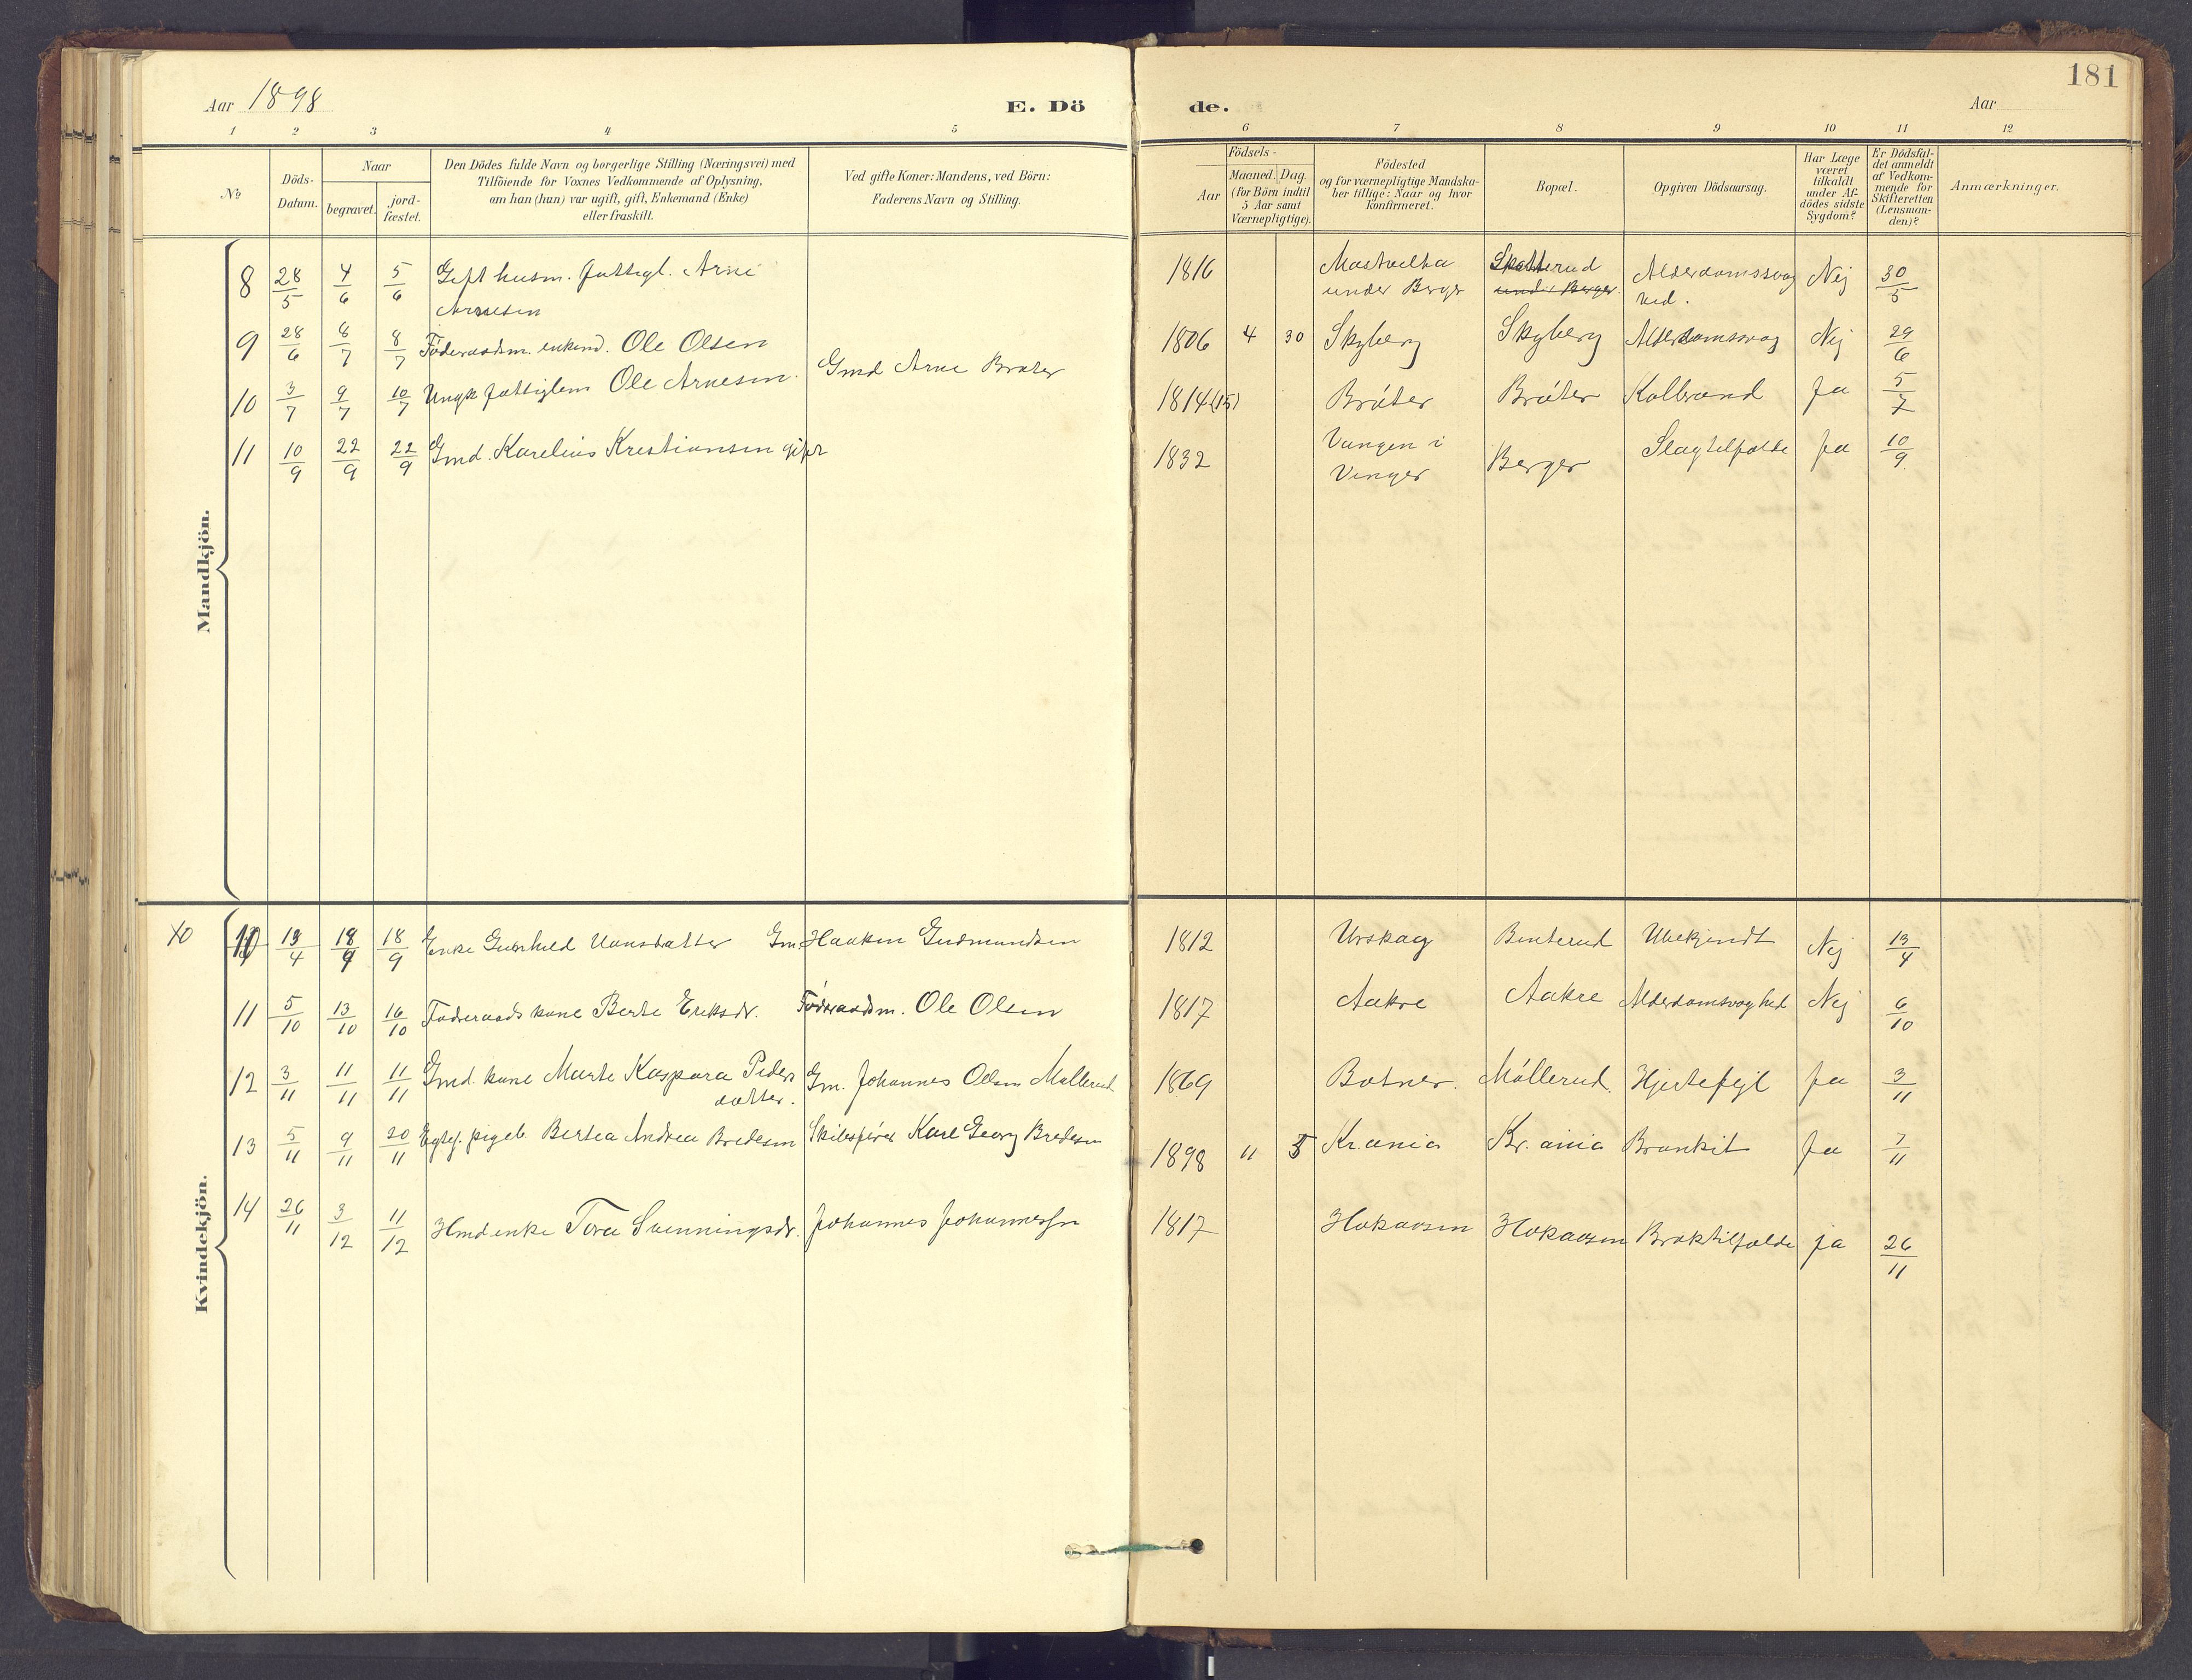 181
Aar 1898 E. Dö de. Aar
1 2 3 4 5 6 7 8 9 10 11 12
No
Döds-Datum.
Naar
begravet.
jord-fæstet.
Den Dödes fulde Navn og borgerlige Stilling (Næringsvei) med
Tilföiende for Voxnes Vedkommende af Oplysning,
om han (hun) var ugift, gift, Enkemand (Enke)
eller fraskilt.
Ved gifte Koner: Mandens, ved Börn:
Faderens Navn og Stilling.
Födsels-
Aar
Maaned. Dag.
(for Börn indtil
5 Aar samt
Værnepligtige).
Födested
og for værnepligtige Mandska-
ber tillige: Naar og hvor
konfirmeret.
Bopæl.
Opgiven Dödsaarsag.
Har Læge
været
tilkaldt
under Af-
dödes sidste
Sygdom?
Er Dödsfal-
det anmeldt
af Vedkom-
mende for
Skifteretten
(Lensman-
den)?
Anmærkninger.
Mandkjön.
8 28/5 4/6 5/6 Gift husm. fattigl. Arne 1816 Mastvelta Skatterud Alderdomssvag Nej 30/5
Arnesen under Berger under Berger hed.
9 28/6 8/7 8/7 Föderaadsm. enkem. Ole Olsen 1806 4 30 Skyberg Skyberg Alderdomssvag Nej 29/6
10 3/7 9/7 10/7 Ungk fattiglem Ole Arnesen Gmd Arne Bråter 1814 (15) Bråter Bråter Kolbrand Ja 5/7
11 10/9 22/9 22/9 Gmd. Karelius Kristiansen gift 1832 Vangen i Berger Slagtilfælde Ja 10/9
Vinger
Kvindekjön.
10 13/4 18/9 18/9 Enke Gunhild Hansdatter Gm. Haaken Gudmundsen 1812 Urskog Benterud Ubekjendt Nej 13/4
11 5/10 13/10 16/10 Föderaads kone Berte Eriksdr. Föderaadsm. Ole Olsen 1817 Aakre Aakre Alderdomsvaghed Nej 6/10
12 3/11 11/11 11/11 Gmd. kone Marte Kaspara Peders Gm. Johannes Olsen Möllerud 1869 Botner. Möllerud Hjertefejl Ja 3/11
datter.
13 5/11 9/11 20/11 Egtef. pigeb. Bertea Andrea Bredesen Skibsfører Karl Georg Bredesen 1898 11 5 Kr.ania Kr.ania Bronkit Ja 7/11
14 26/11 3/12 11/12 Hmd enke Tora Svenningsdr. Johannes Johannessen 1817 Hokaasen Hokaasen Broktilfælde ja 26/11